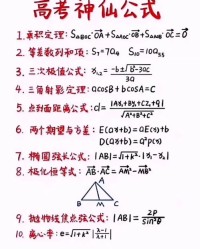 高考神仙公式
1.奔驰定理: S△BOC·OA+S△AOC·OB+S△AOB·OC=0
2.等差数列和项: S₇=7a₄ S₁₀=10a₅.₅
3.三次极值公式: x₁,₂=(-b±√(b²-3ac))/3a
4.三角射影定理: acosB+bcosA=C
5.点到面距离公式: d=|Ax₁+By₁+Cz₁+D|/√(A²+B²+C²)
6.两个期望与方差: E(ax+b)=aE(x)+b
D(ax+b)=a²D(x)
7.椭圆弦长公式: |AB|=√(1+k²)·|x₁-x₂|
8.极化恒等式: AB·AC=AM²-MB²
A
B M C
9.抛物线焦点弦公式: |AB|=2P/sin²θ
10.离心率: e=√(1+k²)|(λ-1)/(λ+1)|